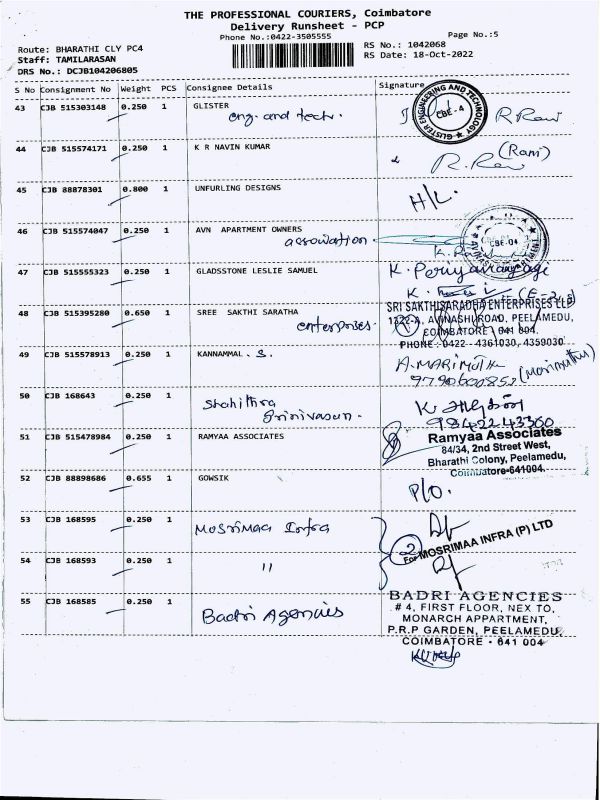 THE PROFESSIONAL COURIERS, Coimbatore
Delivery Runsheet - PCP
Phone No.:0422-3505555
Page No.:5
Route: BHARATHI CLY PC4
RS No.: 1042068
Staff: TAMILARASAN
RS Date: 18-Oct-2022
DRS No.: DCJB104206805
S No Consignment No Weight PCS Consignee Details Signature
43 CJB 515303148 0.250 1 GLISTER
eng. and tech.
GLISTER ENGINEERING AND TECHNOLOGY
CBE-4
R Ravi
44 CJB 515574171 0.250 1 K R NAVIN KUMAR
(Ram)
R. Ravi
45 CJB 88878301 0.800 1 UNFURLING DESIGNS
H/L.
46 CJB 515574047 0.250 1 AVN APARTMENT OWNERS
association.
CBE-04
47 CJB 515555323 0.250 1 GLADSSTONE LESLIE SAMUEL
K. Periyanayagi
48 CJB 515395280 0.650 1 SREE SAKTHI SARATHA
enterprises.
SRI SAKTHISARADHA ENTERPRISES LLP
1222-A, AVINASHI ROAD, PEELAMEDU,
COIMBATORE - 641 004.
PHONE : 0422 - 4361030, 4359030
49 CJB 515578913 0.250 1 KANNAMMAL . S.
A. MARIMUTHU
(Marimuthu)
50 CJB 168643 0.250 1
Shahithra
Srinivasan.
9842243360
51 CJB 515478984 0.250 1 RAMYAA ASSOCIATES
Ramyaa Associates
84/34, 2nd Street West,
Bharathi Colony, Peelamedu,
Coimbatore-641004.
52 CJB 88898686 0.655 1 GOWSIK
P/O.
53 CJB 168595 0.250 1 Mosrimaa Infra
2
For MOSRIMAA INFRA (P) LTD
54 CJB 168593 0.250 1 "
55 CJB 168585 0.250 1 Badri Agencies
BADRI AGENCIES
# 4, FIRST FLOOR, NEX TO,
MONARCH APPARTMENT,
P.R.P GARDEN, PEELAMEDU,
COIMBATORE - 641 004